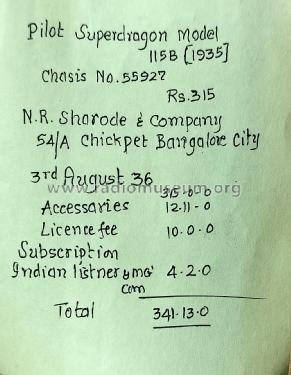 Pilot Superdragon Model
115B [1935]
Chasis No. 55927
Rs. 315
N.R. Sharode & Company
54/A Chickpet Bangalore City
3rd August 36
www.radiomuseum.org
315-0-0
Accessaries 12-11-0
Licence fee 10.0.0
Subscription
Indian listner 4.2.0
Com
Total 341.13.0